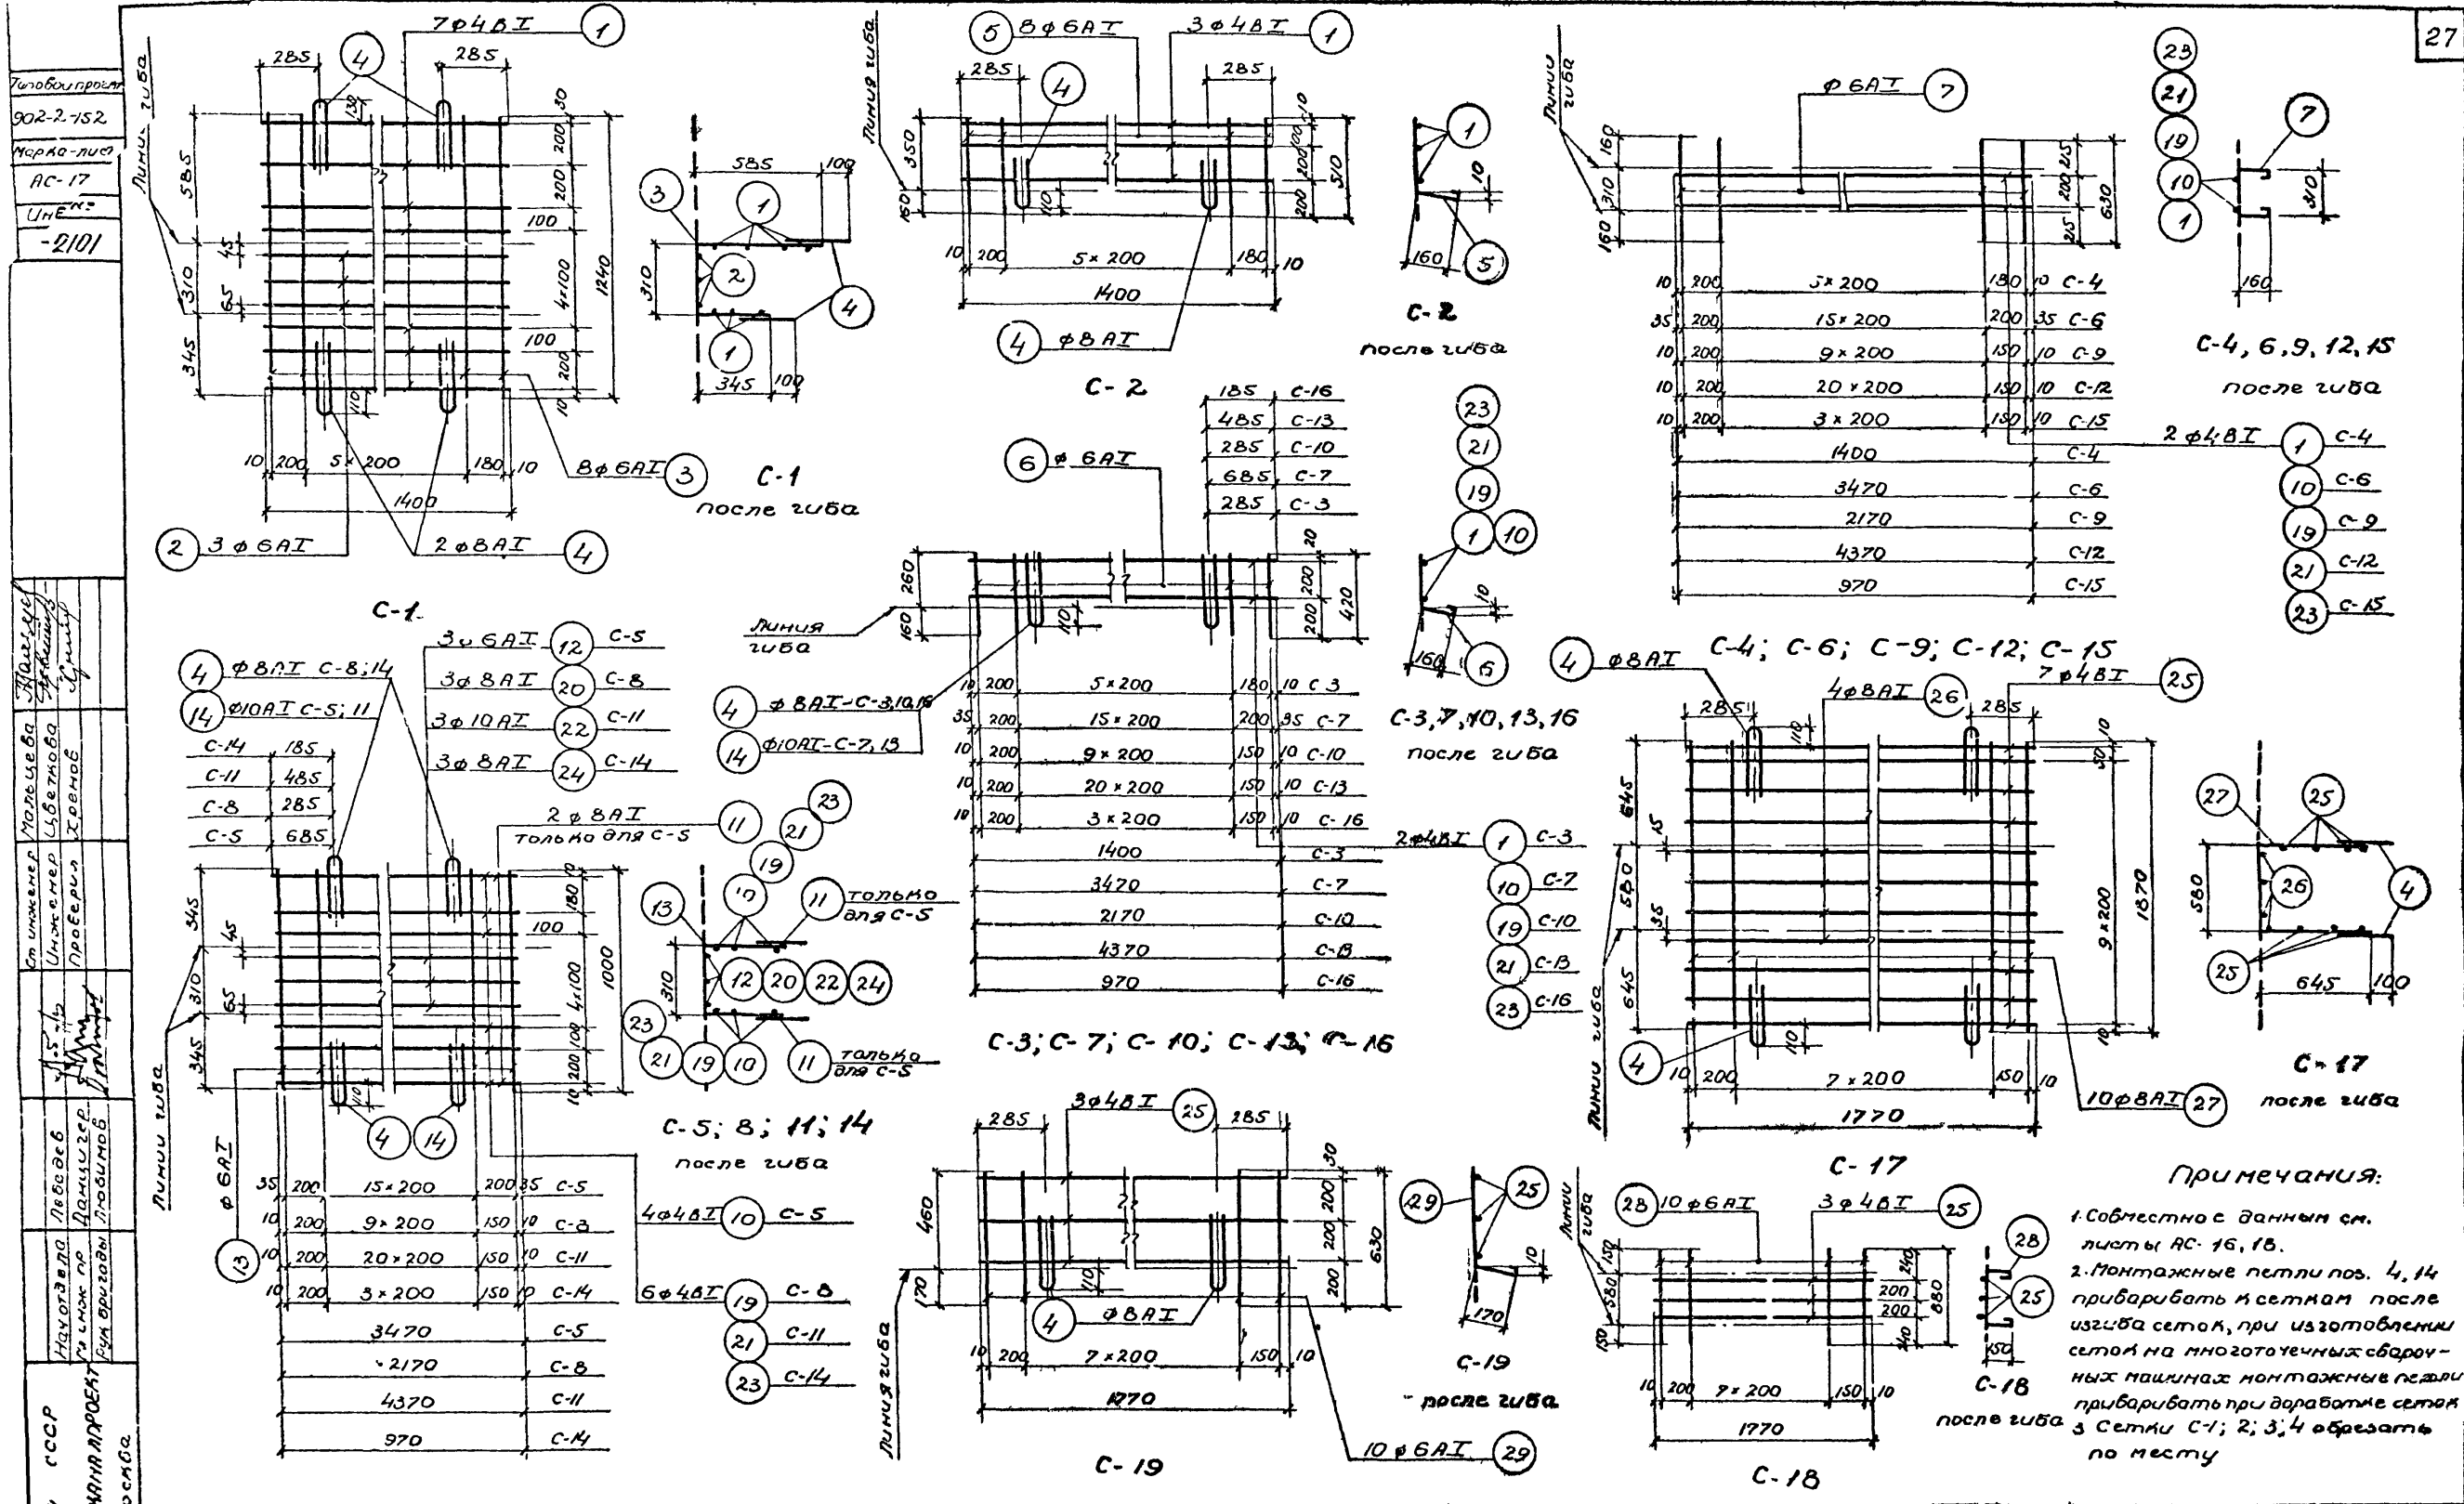 27
Типовой проект
902-2-152
Марка-лист
АС-17
Инв №
-2101
Ст инженер Мольцева
Инженер Цветкова
Проверил Хренов
Нач отдела Лебедев
Гл инж пр Данцигер
Рук бригады Любимов
СССР
Линии гиба
7ϕ4ВI 1
285 4 285
130
585
45
310
65
345
30
200
200
100
4×100
1240
100
200
10
110
10 200 5×200 180 10
1400
8ϕ6АI 3
2 3ϕ6АI
2ϕ8АI 4
С-1
585 100
3 1
2
310
4
1
345 100
С-1
после гиба
Линия гиба
5 8ϕ6АI 3ϕ4ВI 1
285 4 285
350
160
10
100
200
200
510
110
10 200 5×200 180 10
1400
4 ϕ8АI
С-2
1
10
160 5
С-2
после гиба
Линии гиба
ϕ6АI 7
160
310
160
215
200
215
630
10 200 5×200 180 10 С-4
35 200 15×200 200 35 С-6
10 200 9×200 150 10 С-9
10 200 20×200 150 10 С-12
10 200 3×200 150 10 С-15
1400 С-4
3470 С-6
2170 С-9
4370 С-12
970 С-15
С-4; С-6; С-9; С-12; С-15
2ϕ4ВI 1 С-4
10 С-6
19 С-9
21 С-12
23 С-15
23
21
19
10
1
7
310
160
С-4, 6, 9, 12, 15
после гиба
185 С-16
485 С-13
285 С-10
685 С-7
285 С-3
6 ϕ6АI
260
160
20
200
200
420
110
Линия гиба
4 ϕ8АI-С-3,10,16
14 ϕ10АI-С-7,13
10 200 5×200 180 10 С-3
35 200 15×200 200 35 С-7
10 200 9×200 150 10 С-10
10 200 20×200 150 10 С-13
10 200 3×200 150 10 С-16
1400 С-3
3470 С-7
2170 С-10
4370 С-13
970 С-16
2ϕ4ВI 1 С-3
10 С-7
19 С-10
21 С-13
23 С-16
С-3; С-7; С-10; С-13; С-16
23
21
19
1 10
10
160 6
С-3,7,10,13,16
после гиба
4 ϕ8АI С-8;14
14 ϕ10АI С-5;11
3ϕ6АI 12 С-5
3ϕ8АI 20 С-8
3ϕ10АI 22 С-11
3ϕ8АI 24 С-14
С-14 185
С-11 485
С-8 285
С-5 685
2ϕ8АI 11
только для С-5
345
45
310
65
345
10
180
100
4×100
100
200
10
1000
110
4 14
Линии гиба
ϕ6АI
13
35 200 15×200 200 35 С-5
10 200 9×200 150 10 С-8
10 200 20×200 150 10 С-11
10 200 3×200 150 10 С-14
3470 С-5
2170 С-8
4370 С-11
970 С-14
4ϕ4ВI 10 С-5
6ϕ4ВI 19 С-8
21 С-11
23 С-14
23
21
19
10
13 11 только
для С-5
310
12 20 22 24
23
21 19 10 11 только
для С-5
С-5; 8; 11; 14
после гиба
3ϕ4ВI 25
285 285
460
170
30
200
200
200
630
110
4 ϕ8АI
Линия гиба
10 200 7×200 150 10
1770
10ϕ6АI 29
С-19
29 25
10
170
С-19
после гиба
4 ϕ8АI
4ϕ8АI 26
7ϕ4ВI 25
285 285
110
645
15
580
35
645
10
50
9×200
1870
10
110
4
Линии гиба
10 200 7×200 150 10
1770
10ϕ8АI 27
С-17
27 25
580
26
4
25
645 100
С-17
после гиба
Линии гиба
28 10ϕ6АI 3ϕ4ВI 25
150
580
150
240
200
200
240
880
10 200 7×200 150 10
1770
С-18
28
25
150
С-18
после гиба
Примечания:
1. Совместно с данным см.
листы АС-16, 18.
2. Монтажные петли поз. 4, 14
приваривать к сеткам после
изгиба сеток, при изготовлении
сеток на многоточечных свароч-
ных машинах монтажные петли
приваривать при доработке сеток
3 Сетки С-1; 2; 3; 4 обрезать
по месту